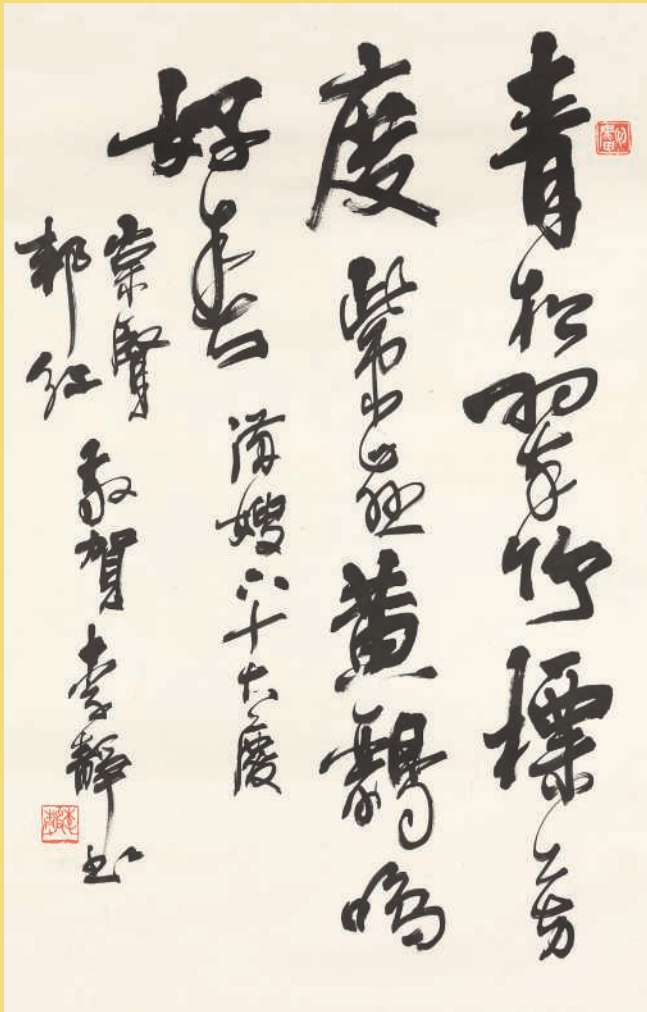 青松翠竹標芳
度紫燕黃鸝鳴
好春
滿嫂十大慶
崇賢
邦紅
敬賀李靜書